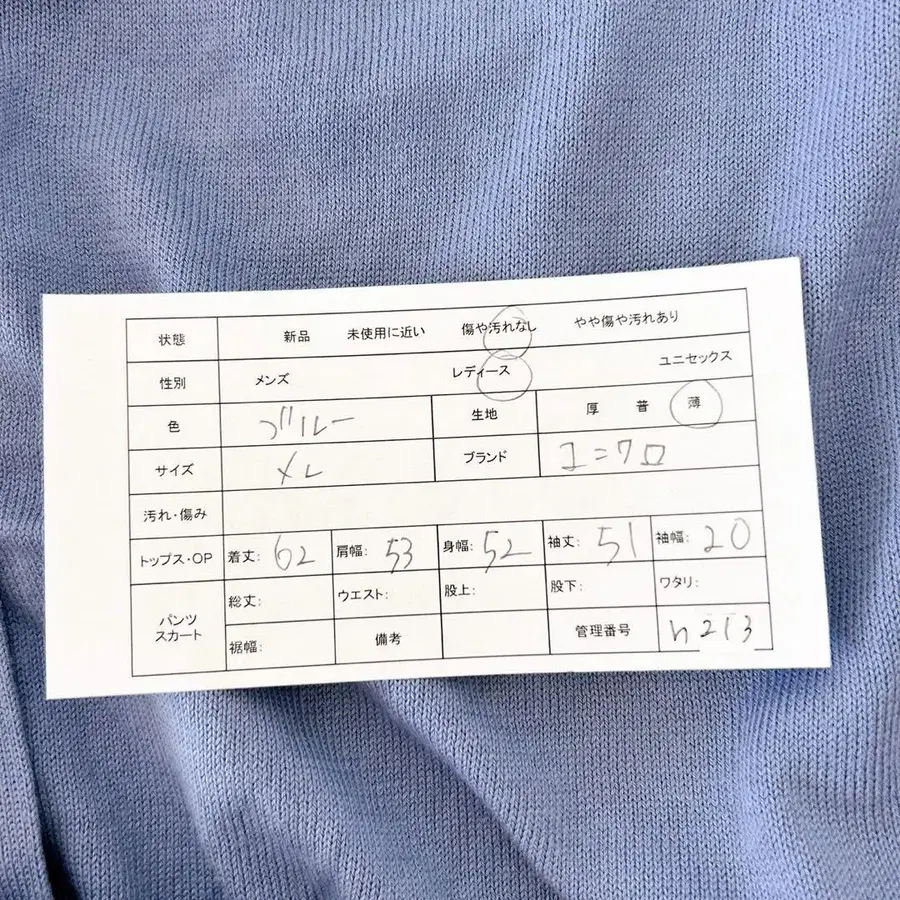 状態 新品 未使用に近い 傷や汚れなし やや傷や汚れあり
性別 メンズ レディース ユニセックス
色 ブルー 生地 厚 普 薄
サイズ XL ブランド ユニクロ
汚れ・傷み
トップス・OP 着丈: 62 肩幅: 53 身幅: 52 袖丈: 51 袖幅: 20
パンツ スカート 総丈: ウエスト: 股上: 股下: ワタリ:
裾幅: 備考 管理番号 h213